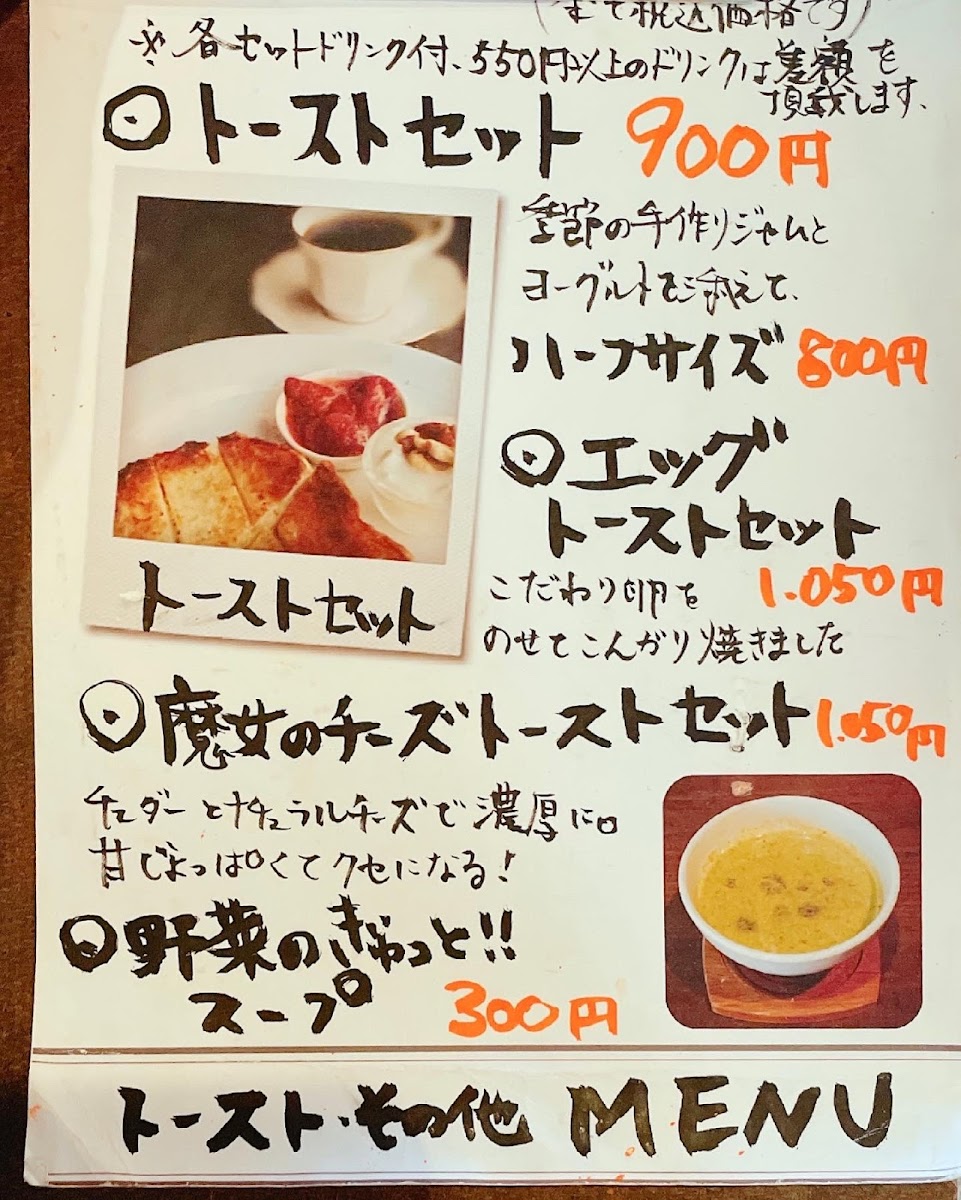 (すべて税込価格です)
※各セットドリンク付、550円以上のドリンクは差額を
頂戴します、
◎トーストセット 900円
季節の手作りジャムと
ヨーグルトを添えて、
ハーフサイズ 800円
◎エッグ
トーストセット
1.050円
こだわり卵を
のせてこんがり焼きました
トーストセット
◎魔女のチーズトーストセット 1.050円
チェダーとナチュラルチーズで濃厚に。
甘じょっぱくてクセになる!
◎野菜のぎゅっと!!
スープ 300円
トースト・その他 MENU